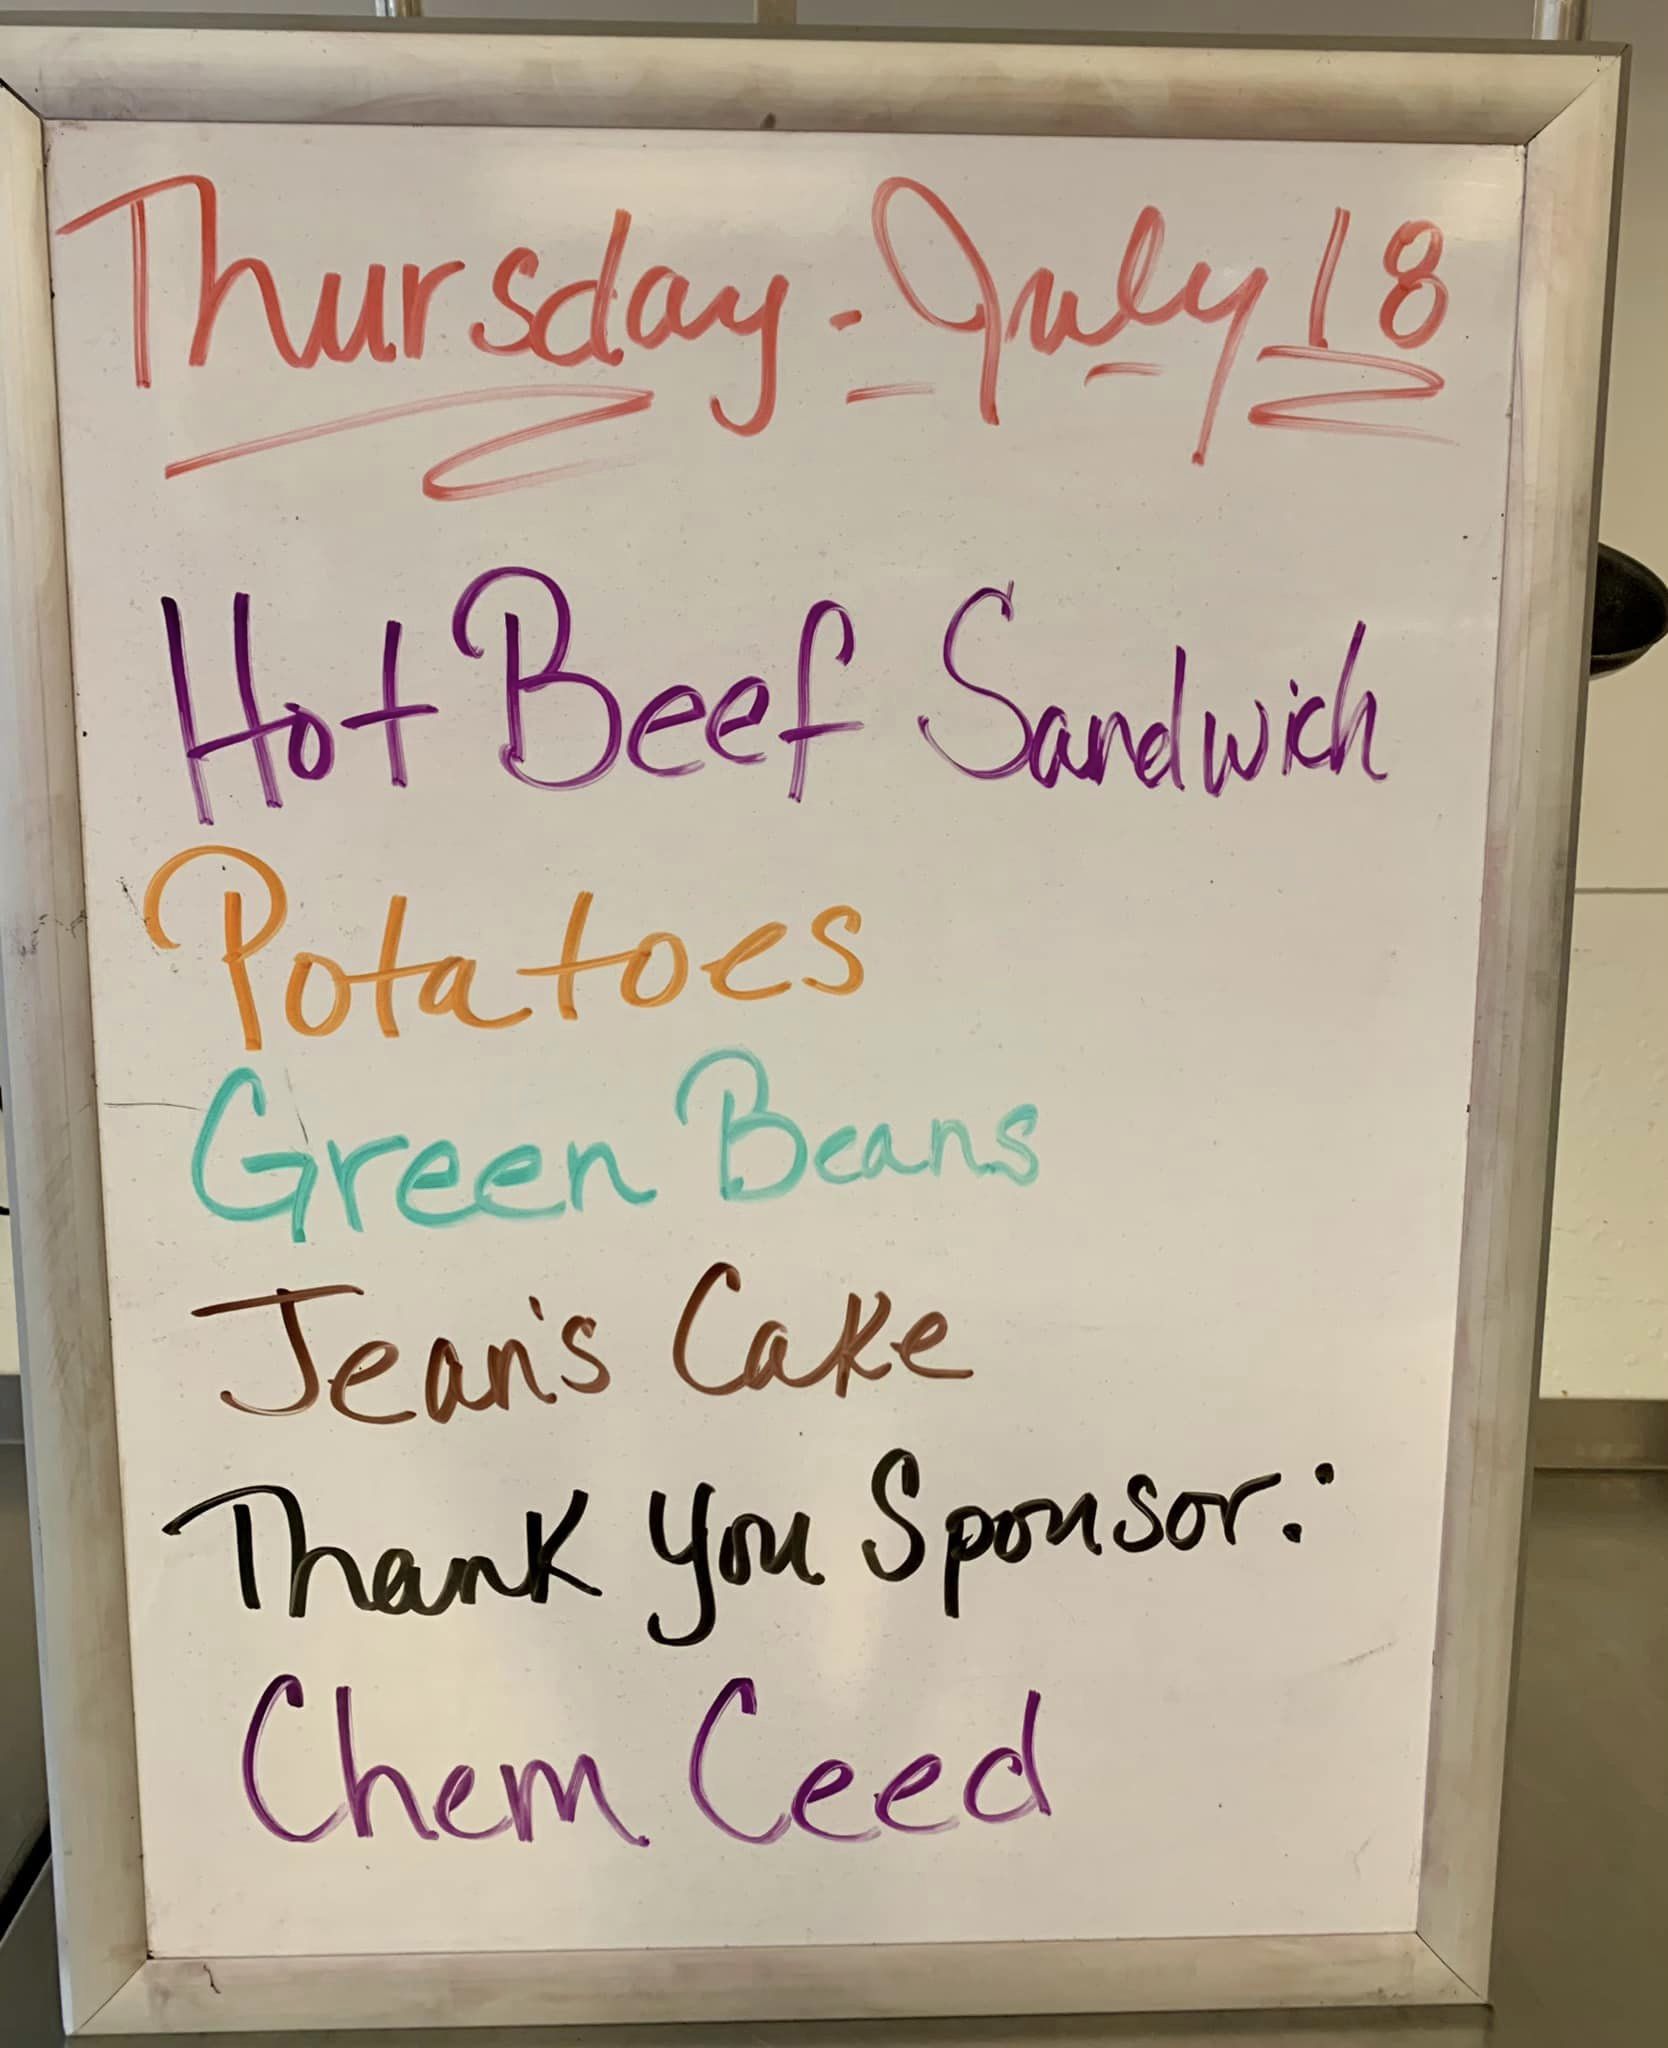 Thursday - July 18
Hot Beef Sandwich
Potatoes
Green Beans
Jean's Cake
Thank You Sponsor:
Chem Ceed